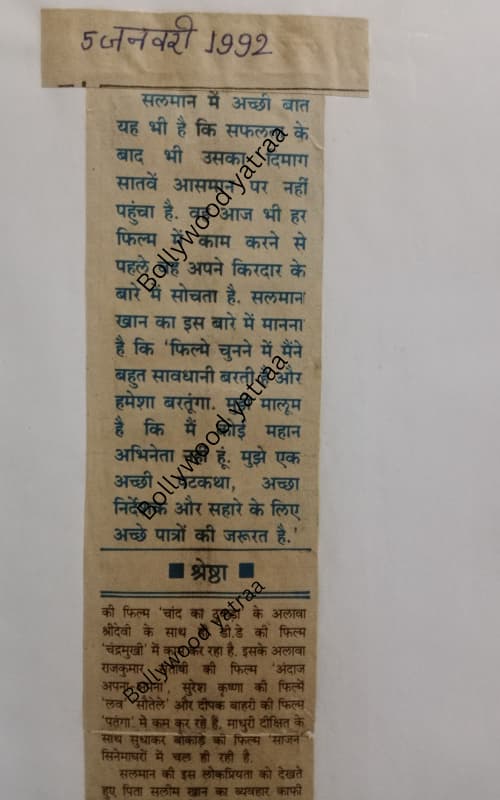 5 जनवरी 1992
सलमान में अच्छी बात
यह भी है कि सफलता के
बाद भी उसका दिमाग
सातवें आसमान पर नहीं
पहुंचा है. वह आज भी हर
फिल्म में काम करने से
पहले वह अपने किरदार के
बारे में सोचता है. सलमान
खान का इस बारे में मानना
है कि 'फिल्मे चुनने में मैंने
बहुत सावधानी बरती है और
हमेशा बरतूंगा. मुझे मालूम
है कि मैं कोई महान
अभिनेता नहीं हूं. मुझे एक
अच्छी पटकथा, अच्छा
निर्देशक और सहारे के लिए
अच्छे पात्रों की जरूरत है.'
■ श्रेष्ठा ■
की फिल्म 'चांद का टुकड़ा' के अलावा
श्रीदेवी के साथ ही डी.डे की फिल्म
'चंद्रमुखी' में काम कर रहा है. इसके अलावा
राजकुमार संतोषी की फिल्म 'अंदाज
अपना अपना', सुरेश कृष्णा की फिल्में
'लव' 'सौतेले' और दीपक बाहरी की फिल्म
'पतंगा' में कम कर रहे हैं, माधुरी दीक्षित के
साथ सुधाकर बोकाड़े की फिल्म 'साजन'
सिनेमाघरों में चल ही रही है.
सलमान की इस लोकप्रियता को देखते
हुए पिता सलीम खान का व्यवहार काफी
Bollywood yatraa
Bollywood yatraa
Bollywood yatraa